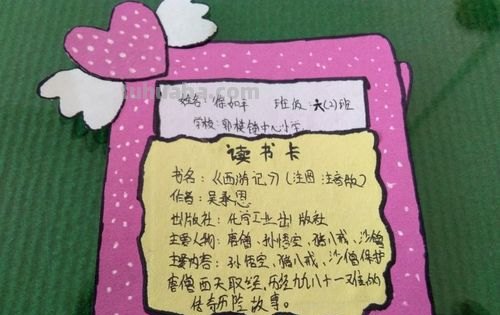 姓名：徐如平 班级：六(2)班
学校：郭楼镇中心小学
读书卡
书名：《西游记》(注图 注音版)
作者：吴承恩
出版社：化工工业出版社
主要人物：唐僧、孙悟空、猪八戒、沙僧
主要内容：孙悟空、猪八戒、沙僧保护
唐僧西天取经，历经九九八十一难的
传奇历险故事。
tuhuaba.com